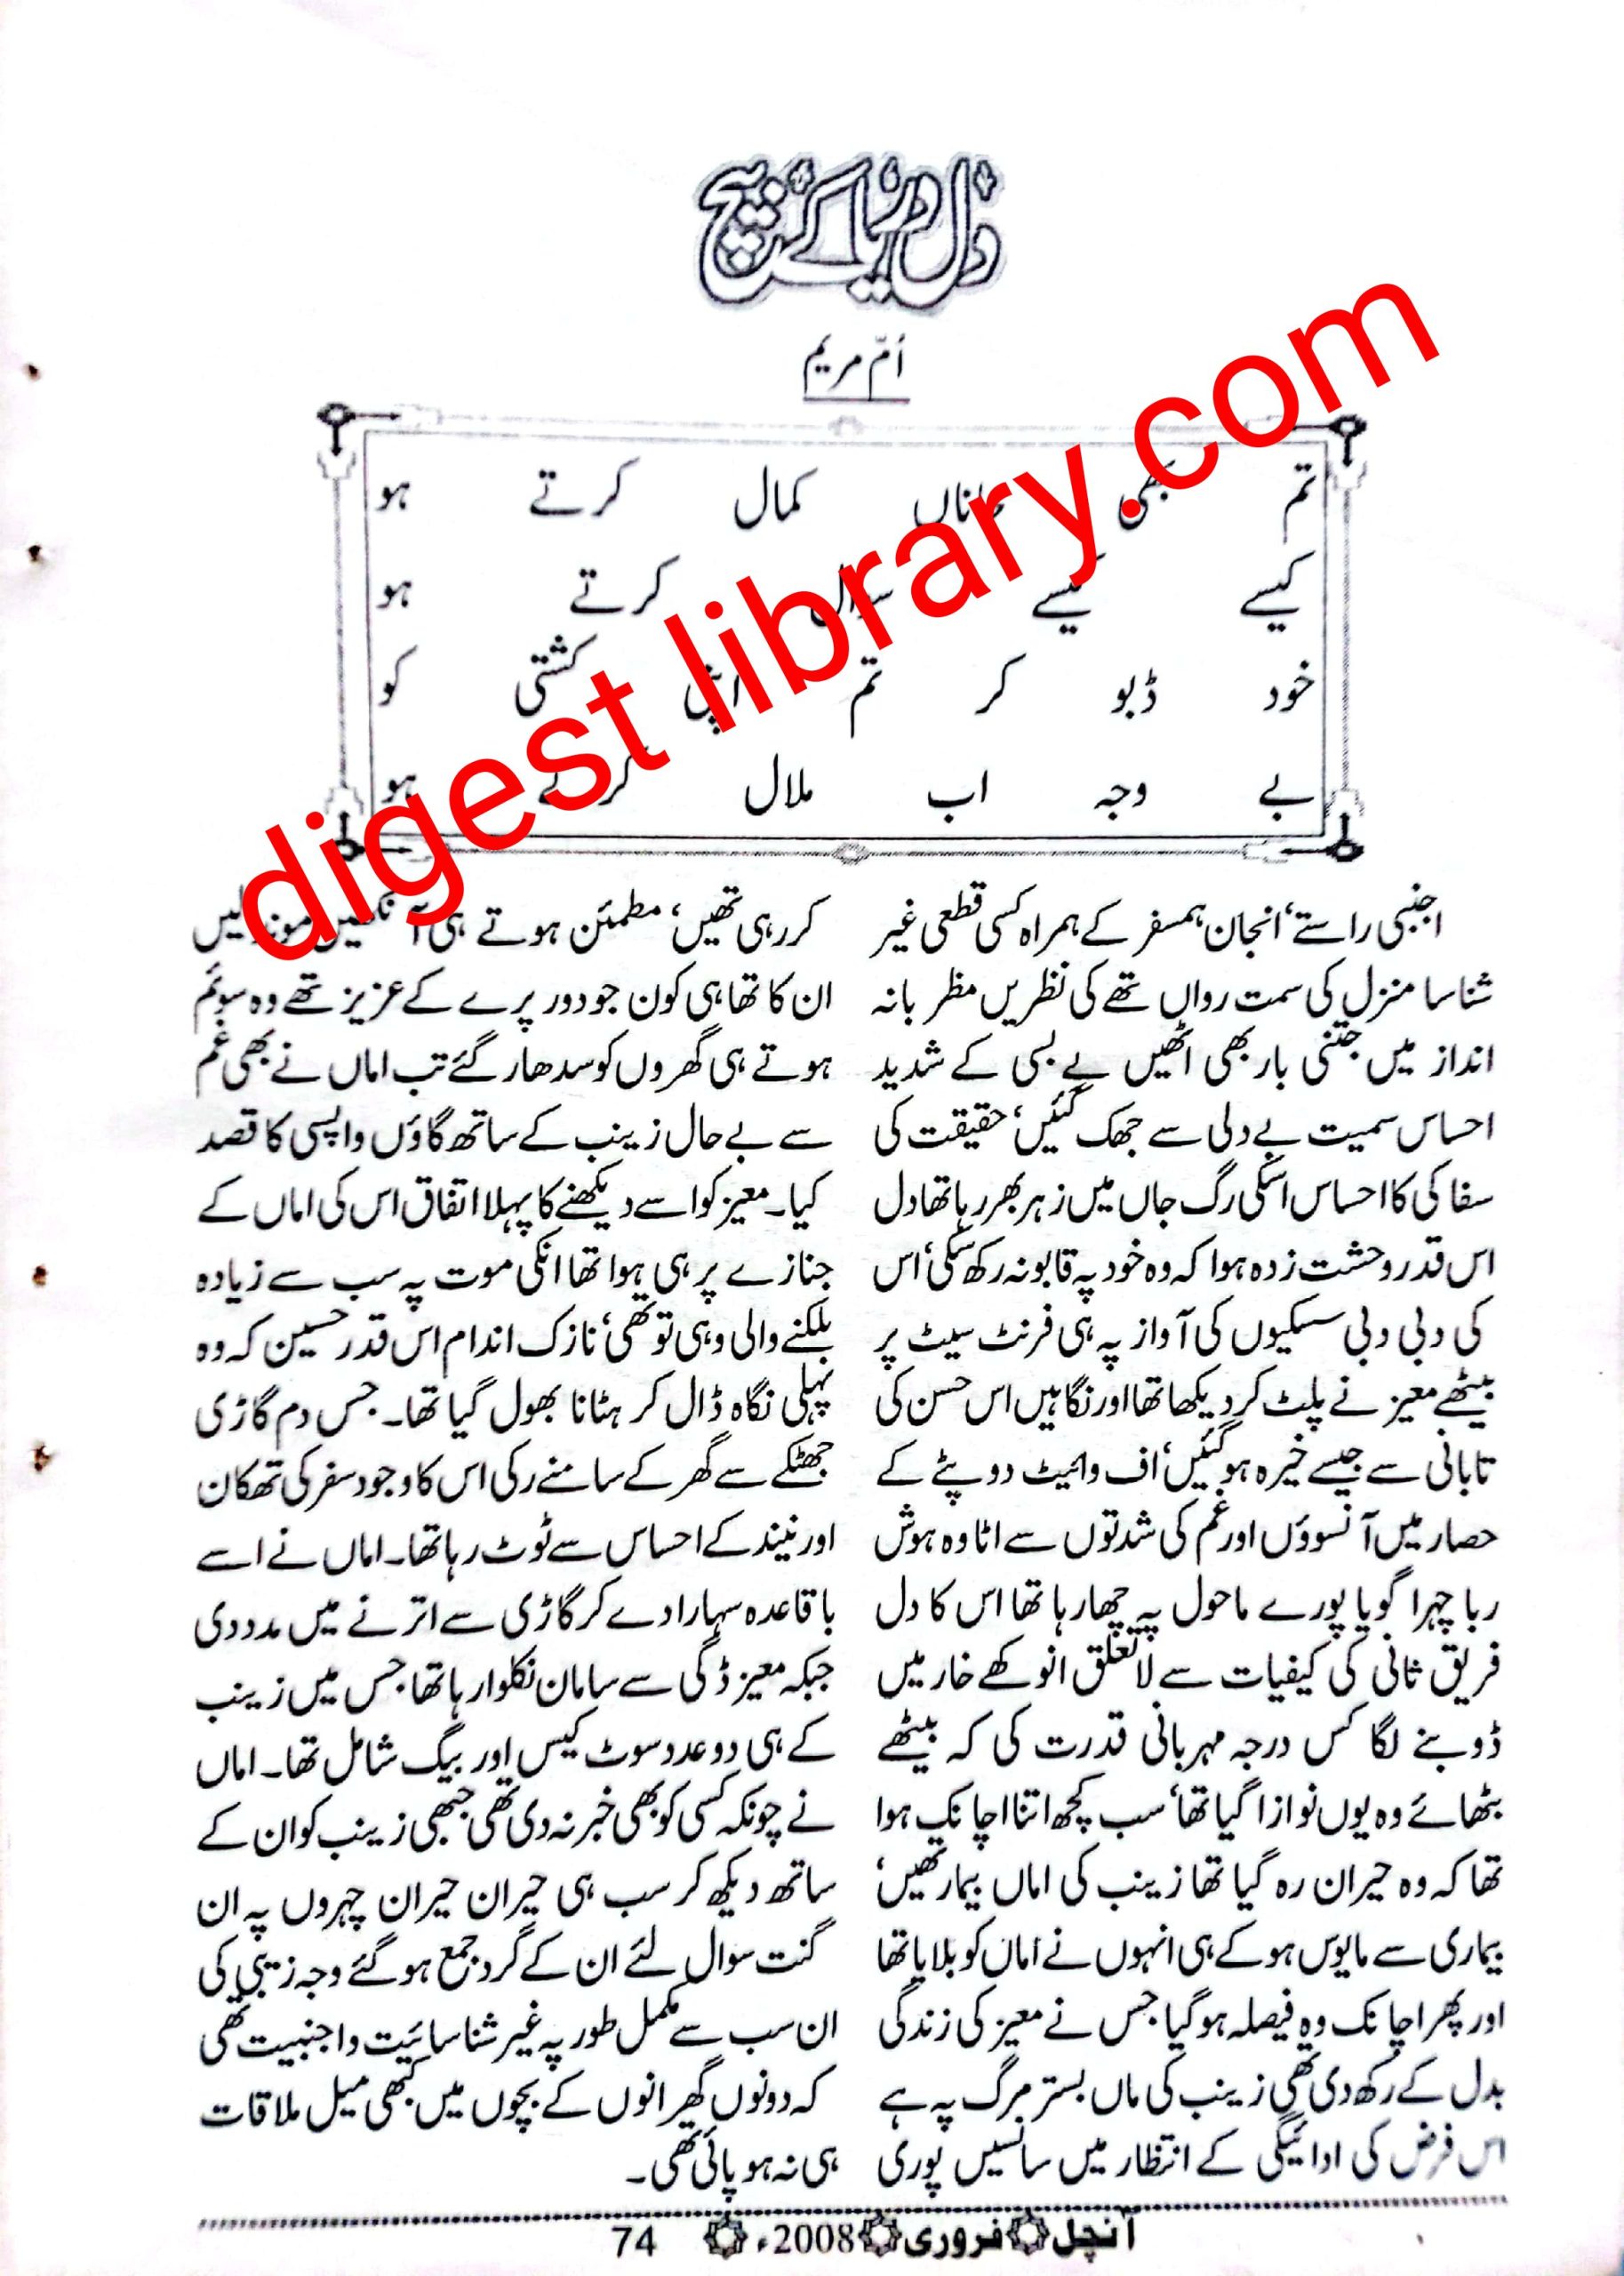 دل دریا کے بیچ
اُمّ مریم
تم بھی جاناں کمال کرتے ہو
کیسے کیسے سوال کرتے ہو
خود ڈبو کر تم اپنی کشتی کو
بے وجہ اب ملال کرتے ہو
digest library.com
اجنبی راستے، انجان ہمسفر کے ہمراہ کسی قطعی غیر
شناسا منزل کی سمت رواں تھے کی نظریں مظر بانہ
انداز میں جتنی بار بھی اٹھیں بے بسی کے شدید
احساس سمیت بے دلی سے جھک گئیں، حقیقت کی
سفاکی کا احساس اسکی رگ جاں میں زہر بھر رہا تھا دل
اس قدر وحشت زدہ ہوا کہ وہ خود پہ قابو نہ رکھ سکی، اس
کی دبی دبی سسکیوں کی آواز پہ ہی فرنٹ سیٹ پر
بیٹھے معیز نے پلٹ کر دیکھا تھا اور نگاہیں اس حسن کی
تابانی سے جیسے خیرہ ہو گئیں، اف وائیٹ دوپٹے کے
حصار میں آنسوؤں اور غم کی شدتوں سے اٹا وہ ہوش
ربا چہرا گویا پورے ماحول پہ چھا رہا تھا اس کا دل
فریق ثانی کی کیفیات سے لاتعلق انوکھے خمار میں
ڈوبنے لگا کس درجہ مہربانی قدرت کی کہ بیٹھے
بٹھائے وہ یوں نوازا گیا تھا، سب کچھ اتنا اچانک ہوا
تھا کہ وہ حیران رہ گیا تھا زینب کی اماں بیمار تھیں،
بیماری سے مایوس ہو کے ہی انہوں نے اماں کو بلایا تھا
اور پھر اچانک وہ فیصلہ ہو گیا جس نے معیز کی زندگی
بدل کے رکھ دی تھی زینب کی ماں بستر مرگ پہ ہے
اس فرض کی ادائیگی کے انتظار میں سانسیں پوری
کر رہی تھیں، مطمئن ہوتے ہی آنکھیں موند لیں
ان کا تھا ہی کون جو دور پرے کے عزیز تھے وہ سوئم
ہوتے ہی گھروں کو سدھار گئے تب اماں نے بھی غم
سے بے حال زینب کے ساتھ گاؤں واپسی کا قصد
کیا۔ معیز کو اسے دیکھنے کا پہلا اتفاق اس کی اماں کے
جنازے پر ہی ہوا تھا انکی موت پہ سب سے زیادہ
بلکنے والی وہی تو تھی، نازک اندام اس قدر حسین کہ وہ
پہلی نگاہ ڈال کر ہٹانا بھول گیا تھا۔ جس دم گاڑی
جھٹکے سے گھر کے سامنے رکی اس کا وجود سفر کی تھکان
اور نیند کے احساس سے ٹوٹ رہا تھا۔ اماں نے اسے
باقاعدہ سہارا دے کر گاڑی سے اترنے میں مدد دی
جبکہ معیز ڈگی سے سامان نکلوا رہا تھا جس میں زینب
کے ہی دو عدد سوٹ کیس اور بیگ شامل تھا۔ اماں
نے چونکہ کسی کو بھی خبر نہ دی تھی جبھی زینب کو ان کے
ساتھ دیکھ کر سب ہی حیران حیران چہروں پہ ان
گنت سوال لئے ان کے گرد جمع ہو گئے وجہ زیبی کی
ان سب سے مکمل طور پہ غیر شناسائیت و اجنبیت تھی
کہ دونوں گھرانوں کے بچوں میں کبھی میل ملاقات
ہی نہ ہو پائی تھی۔
آنچل فروری 2008ء 74